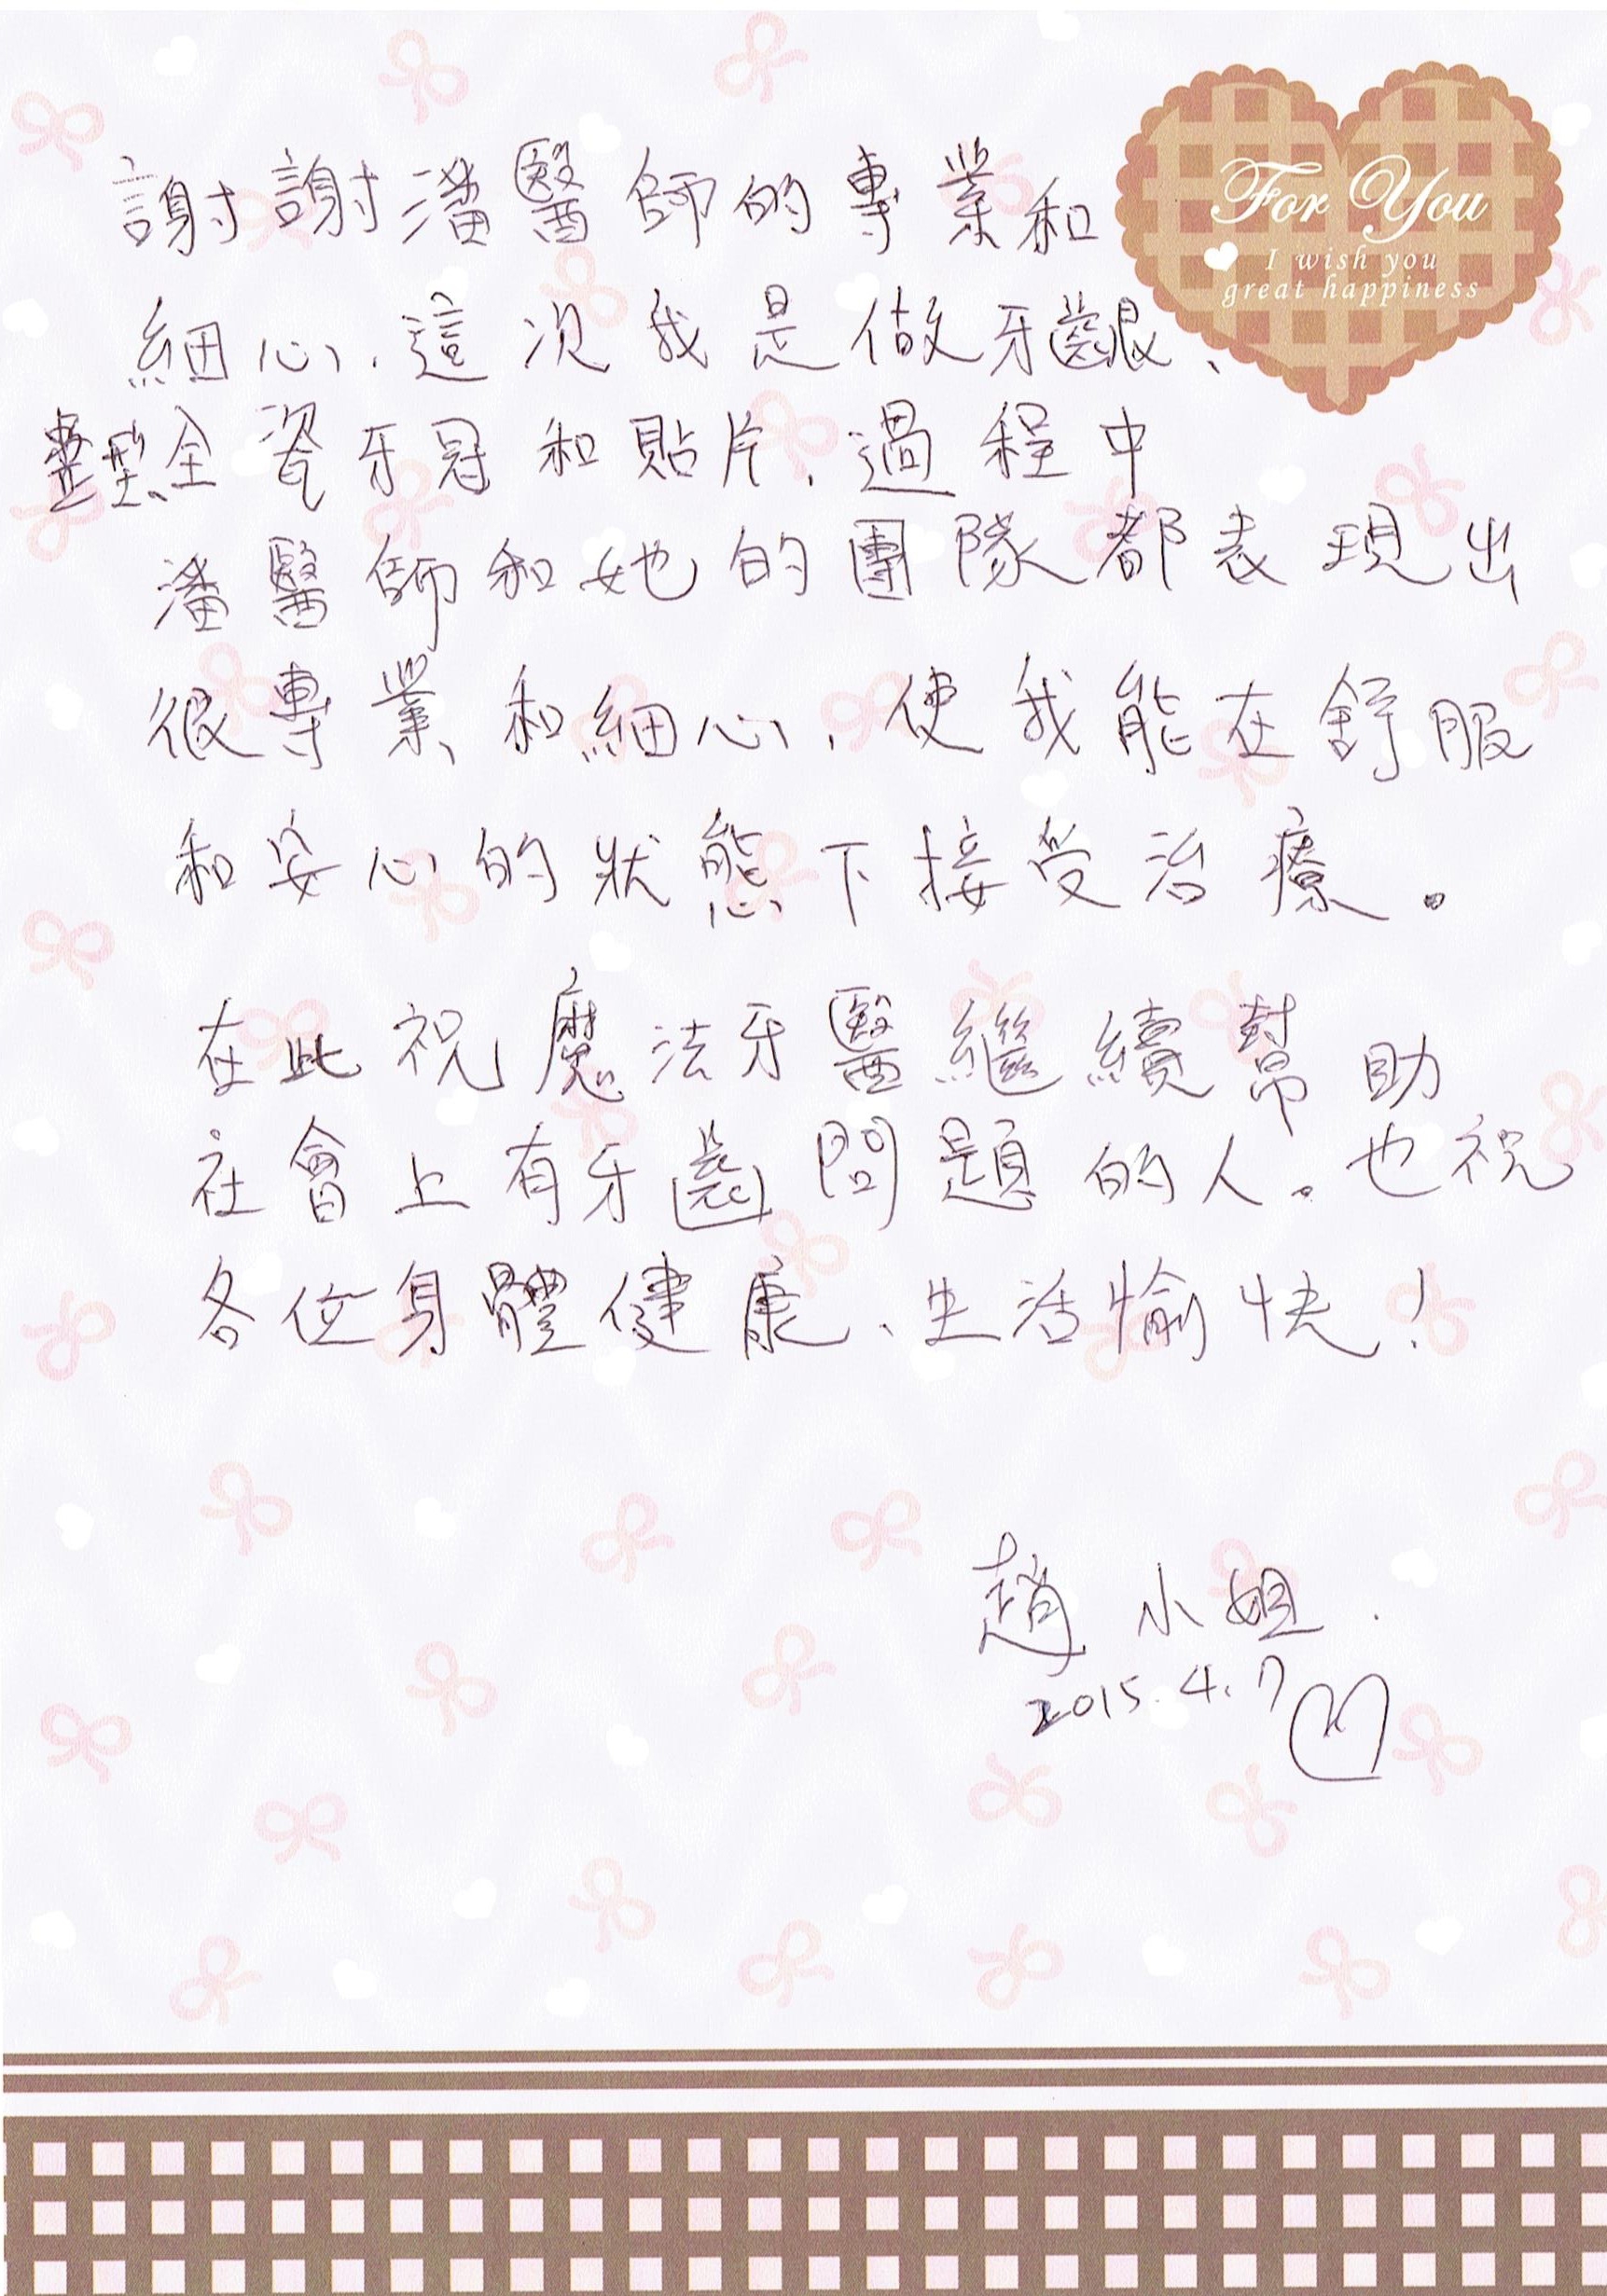 For You
I wish you
great happiness
謝謝潘醫師的專業和
細心,這次我是做牙齦、
整型、全瓷牙冠和貼片,過程中
潘醫師和她的團隊都表現出
很專業和細心,使我能在舒服
和安心的狀態下接受治療。
在此祝魔法牙醫繼續幫助
社會上有牙齒問題的人。也祝
各位身體健康、生活愉快!
趙小姐.
2015.4.7